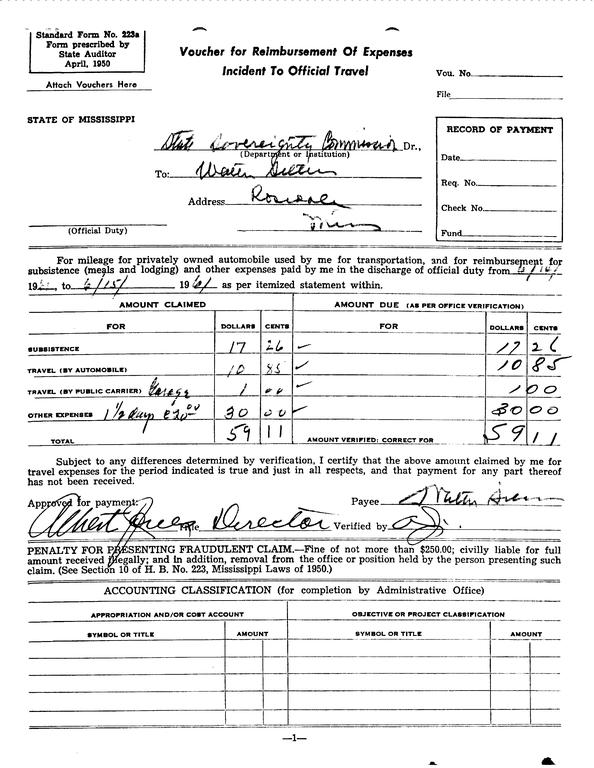 Standard Form No. 223a
Form prescribed by
State Auditor
April, 1950
Attach Vouchers Here
Voucher for Reimbursement Of Expenses
Incident To Official Travel
Vou. No.
File
STATE OF MISSISSIPPI
State Sovereignty Commission Dr.,
(Department or Institution)
To: Walter
Address
Miss
(Official Duty)
RECORD OF PAYMENT
Date
Req. No.
Check No.
Fund
For mileage for privately owned automobile used by me for transportation, and for reimbursement for
subsistence (meals and lodging) and other expenses paid by me in the discharge of official duty from
19 to 6/15/ 1961 as per itemized statement within.
AMOUNT CLAIMED AMOUNT DUE (AS PER OFFICE VERIFICATION)
FOR DOLLARS CENTS FOR DOLLARS CENTS
SUBSISTENCE 17 26 17 26
TRAVEL (BY AUTOMOBILE) 10 85 10 85
TRAVEL (BY PUBLIC CARRIER) Garage 1 00 1 00
OTHER EXPENSES 1 1/2 days @ 20.00 30 00 30 00
TOTAL 59 11 AMOUNT VERIFIED: CORRECT FOR 59 11
Subject to any differences determined by verification, I certify that the above amount claimed by me for
travel expenses for the period indicated is true and just in all respects, and that payment for any part thereof
has not been received.
Approved for payment: Payee Walter
Albert Title Director Verified by
PENALTY FOR PRESENTING FRAUDULENT CLAIM.—Fine of not more than $250.00; civilly liable for full
amount received illegally; and in addition, removal from the office or position held by the person presenting such
claim. (See Section 10 of H. B. No. 223, Mississippi Laws of 1950.)
ACCOUNTING CLASSIFICATION (for completion by Administrative Office)
APPROPRIATION AND/OR COST ACCOUNT OBJECTIVE OR PROJECT CLASSIFICATION
SYMBOL OR TITLE AMOUNT SYMBOL OR TITLE AMOUNT
—1—